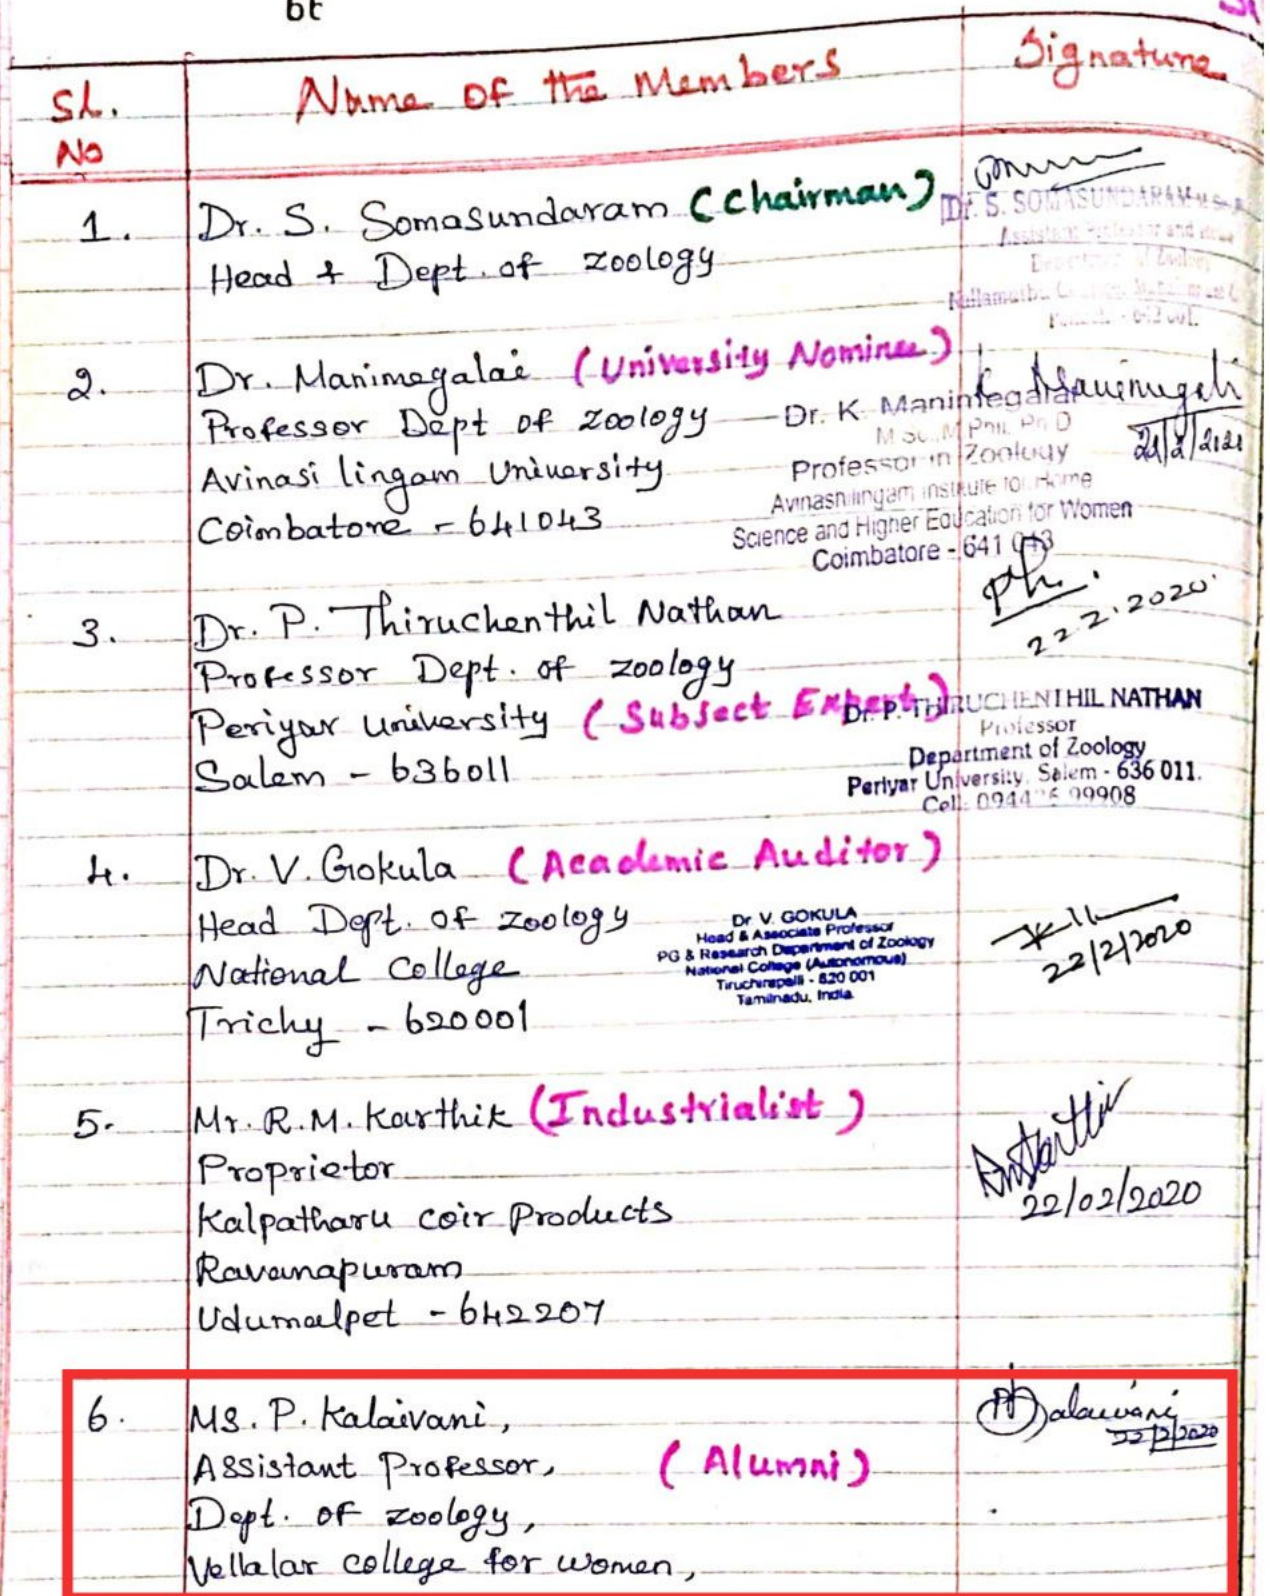 Sl.
No
Name of the Members
Signature
1.
Dr. S. Somasundaram (Chairman)
Head & Dept. of zoology
Dr. S. SOMASUNDARAM
2.
Dr. Manimegalai (University Nominee)
Professor Dept of zoology
Avinasi lingam University
Coimbatore - 641043
Dr. K. Manimegalai
M.Sc., M.Phil., Ph.D
Professor in Zoology
Avinashilingam Institute for Home
Science and Higher Education for Women
Coimbatore - 641 043
3.
Dr. P. Thiruchenthil Nathan
Professor Dept. of zoology
Periyar university (Subject Expert)
Salem - 636011
22.2.2020
Dr. P. THIRUCHENTHIL NATHAN
Professor
Department of Zoology
Periyar University, Salem - 636 011.
4.
Dr. V. Gokula (Academic Auditor)
Head Dept. of zoology
National College
Trichy - 620001
Dr V. GOKULA
Head & Associate Professor
PG & Research Department of Zoology
National College (Autonomous)
Tiruchirapalli - 620 001
Tamilnadu, India
22/2/2020
5.
Mr. R.M. Karthik (Industrialist)
Proprietor
Kalpatharu coir Products
Ravanapuram
Udumalpet - 642207
22/02/2020
6.
Ms. P. Kalaivani,
Assistant Professor, (Alumni)
Dept. of zoology,
Vellalar college for women,
22/2/2020